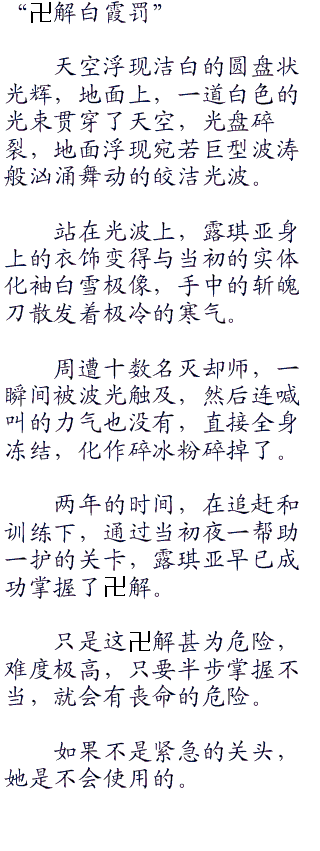 “卍解白霞罚”
天空浮现洁白的圆盘状
光辉，地面上，一道白色的
光束贯穿了天空，光盘碎
裂，地面浮现宛若巨型波涛
般汹涌舞动的皎洁光波。
站在光波上，露琪亚身
上的衣饰变得与当初的实体
化袖白雪极像，手中的斩魄
刀散发着极冷的寒气。
周遭十数名灭却师，一
瞬间被波光触及，然后连喊
叫的力气也没有，直接全身
冻结，化作碎冰粉碎掉了。
两年的时间，在追赶和
训练下，通过当初夜一帮助
一护的关卡，露琪亚早已成
功掌握了卍解。
只是这卍解甚为危险，
难度极高，只要半步掌握不
当，就会有丧命的危险。
如果不是紧急的关头，
她是不会使用的。